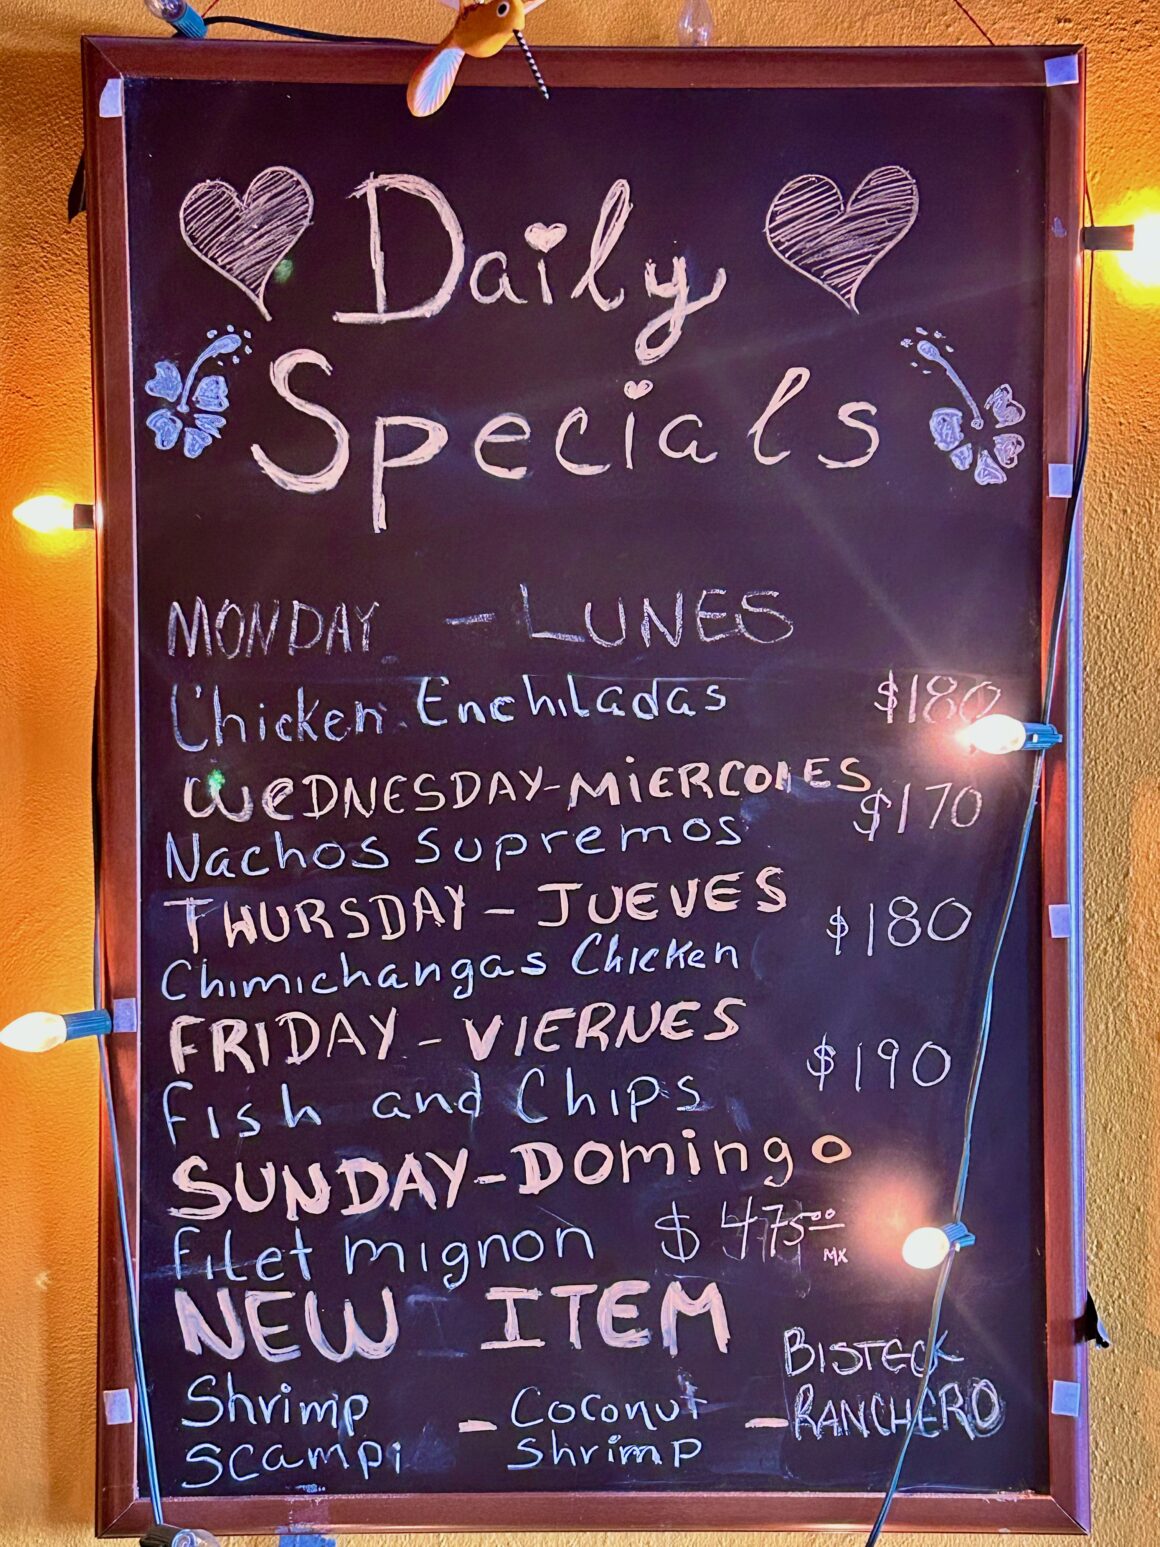 Daily
Specials
MONDAY - LUNES
Chicken Enchiladas $180
WeDNESDAY-MiERCOlES
$170
Nachos Supremos
THURSDAY - JUEVES
$180
Chimichangas Chicken
FRIDAY - VIERNES
$190
Fish and Chips
SUNDAY-DOmingo
Filet mignon $475.00 MX
NEW ITEM
Shrimp - Coconut - BISTECK
Scampi Shrimp RANCHERO